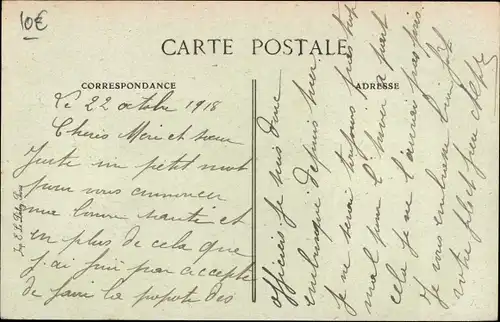 10€
CARTE POSTALE
CORRESPONDANCE
ADRESSE
Le 22 octobre 1918
Chères Mère et sœur
Juste un petit mot
pour vous annoncer
une bonne santé et
en plus de cela que
j'ai fini par accepté
de faire la popote des
officiers je suis donc
embusqué depuis hier
je ne serai toujours pas trop
mal pour l'hiver à part
cela je ne
Je vous embrasse bien fort
votre fils et frère